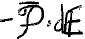 -P̅·dE̅